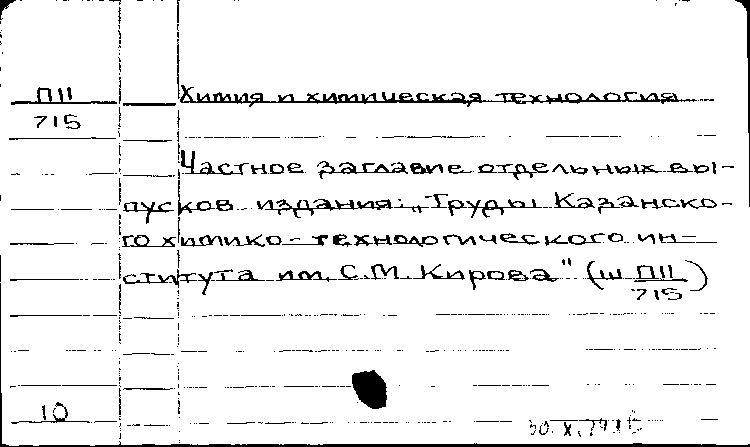 П11 Химия и химическая технология
715
Частное заглавие отдельных вы-
пусков издания: „Труды Казанско-
го химико-технологического ин-
ститута им. С.М. Кирова" (ш П11
715)
10